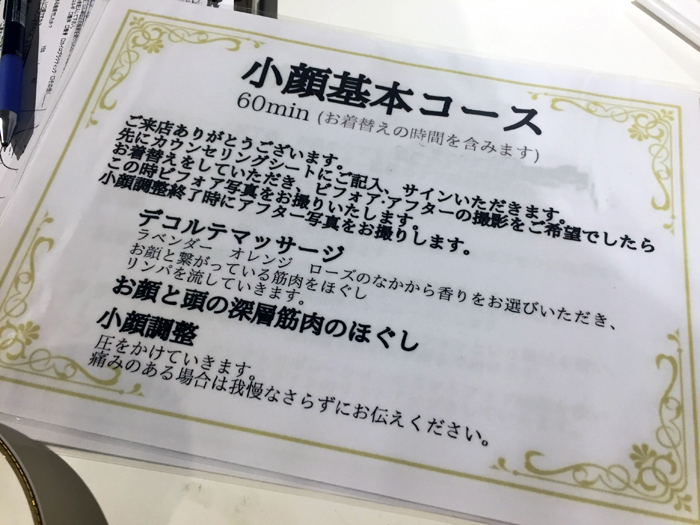 小顔基本コース
60min (お着替えの時間を含みます)
ご来店ありがとうございます。
先にカウンセリングシートにご記入、サインいただきます。
お着替えをしていただき、ビフォア・アフターの撮影をご希望でしたら
この時ビフォア写真をお撮りいたします。
小顔調整終了時にアフター写真をお撮りします。
デコルテマッサージ
ラベンダー オレンジ ローズのなかから香りをお選びいただき、
お顔と繋がっている筋肉をほぐし
リンパを流していきます。
お顔と頭の深層筋肉のほぐし
小顔調整
圧をかけていきます。
痛みのある場合は我慢なさらずにお伝えください。